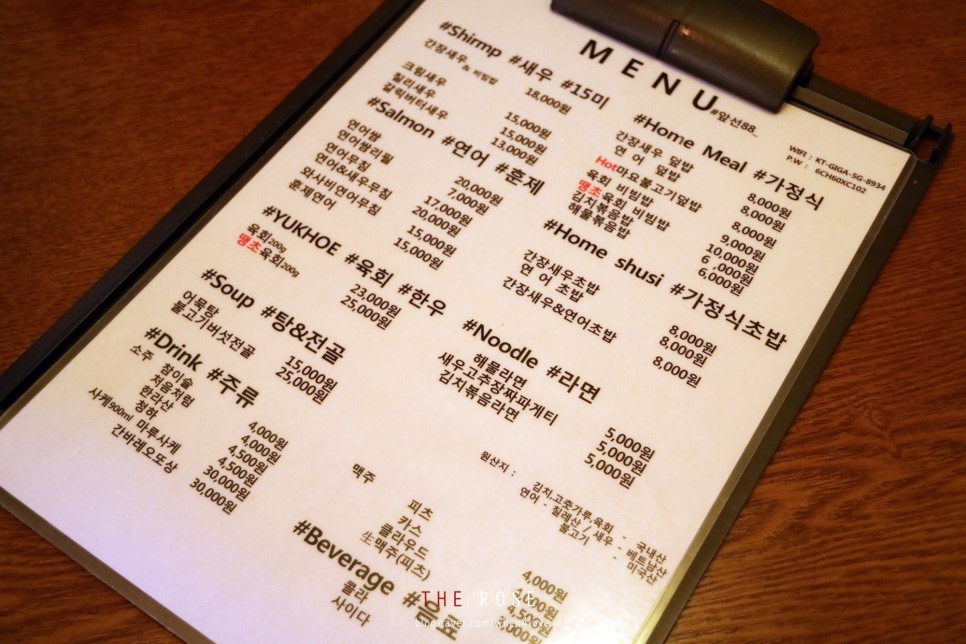 MENU #앞선88_
WIFI : KT-GIGA-5G-8934
P.W : 6CH60XC102
#Shirmp #새우 #15미
간장새우& 비빔밥 18,000원
크림새우 15,000원
칠리새우 15,000원
갈릭버터새우 13,000원
#Salmon #연어 #훈제
연어쌈 20,000원
연어쌈리필 7,000원
연어무침 17,000원
연어&새우무침 20,000원
와사비연어무침 15,000원
훈제연어 15,000원
#YUKHOE #육회 #한우
육회200g 23,000원
땡초육회200g 25,000원
#Soup #탕&전골
어묵탕 15,000원
불고기버섯전골 25,000원
#Drink #주류
소주 참이슬 4,000원
처음처럼 4,000원
한라산 4,500원
청하 4,500원
사케900ml 마루사케 30,000원
간바레오또상 30,000원
맥주
피츠 4,000원
카스
클라우드
生맥주(피츠)
#Beverage #음료
콜라
사이다
#Home Meal #가정식
간장새우 덮밥 8,000원
연 어 덮밥 8,000원
Hot마요불고기덮밥 8,000원
육회 비빔밥 9,000원
땡초육회 비빔밥 10,000원
김치볶음밥 6,000원
해물볶음밥 6,000원
#Home shusi #가정식초밥
간장새우초밥 8,000원
연 어 초밥 8,000원
간장새우&연어초밥 8,000원
#Noodle #라면
해물라면 5,000원
새우고추장짜파게티 5,000원
김치볶음라면 5,000원
원산지 :
김치,고춧가루,육회 - 국내산
연어 - 칠레산 / 새우 - 베트남산
불고기 - 미국산
THE ROSE